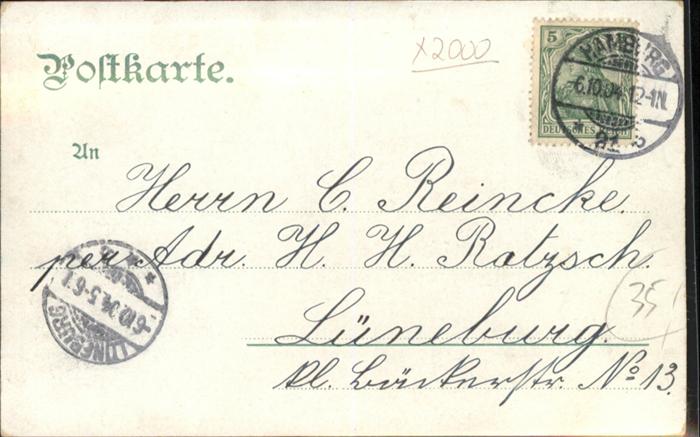 x2000
Postkarte.
5
DEUTSCHES REICH
HAMBURG
6.10.04. 12-1N.
* 3
An
Herrn C. Reincke.
per Adr. H. H. Ratzsch.
Lüneburg.
kl. Bäckerstr. No 13.
LÜNEBURG
-6.10.04. 5-6
35